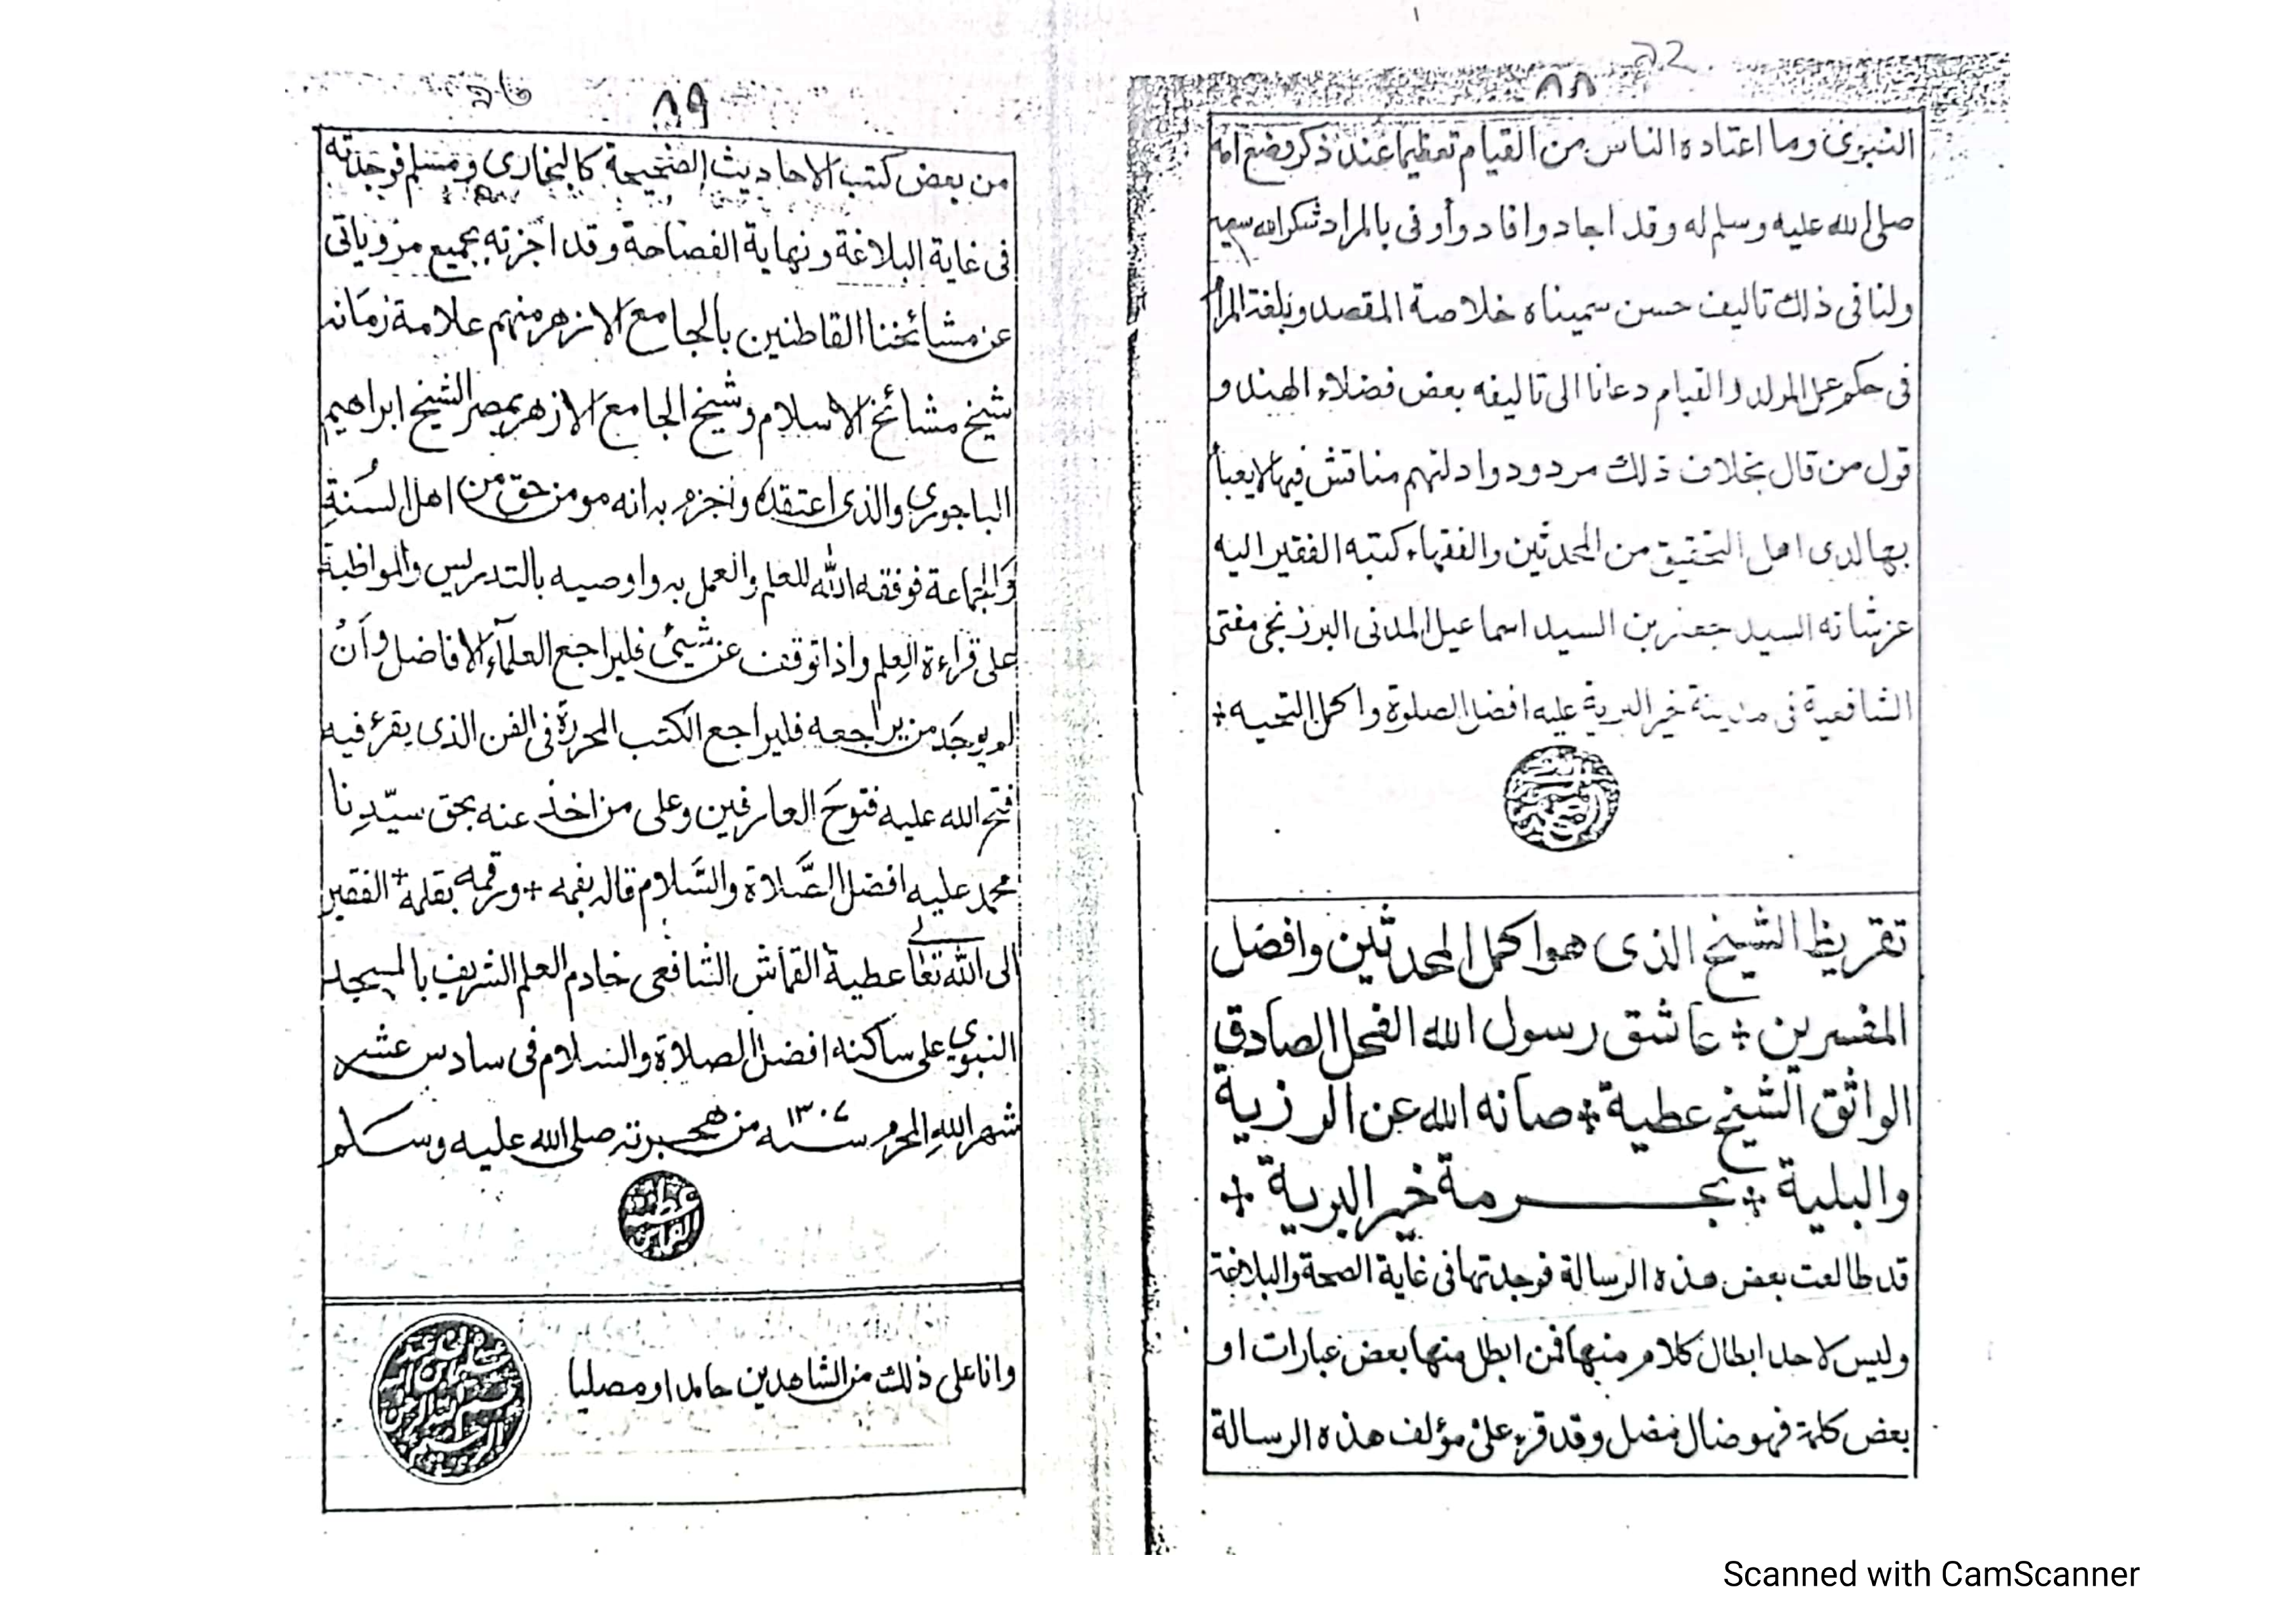 ٨٨
النبوى وما اعتاده الناس من القيام تعظيما عند ذكر وضع امه
صلى الله عليه وسلم له وقد اجاد وافاد وأوفى بالمراد شكر الله سعيه
ولنا فى ذلك تاليف حسن سميناه خلاصة المقصد وبلغة المرا
فى حكم عمل المولد والقيام دعانا الى تاليفه بعض فضلاء الهند و
قول من قال بخلاف ذلك مردود وادلتهم مناقش فيها لا يعبأ
بها لدى اهل التحقيق من المحدثين والفقهاء كتبه الفقير اليه
عز شانه السيد جعفر بن السيد اسماعيل المدنى البرزنجى مفتى
الشافعية فى مدينة خير البرية عليه افضل الصلوة واكمل التحيه +
تقريظ الشيخ الذى هو اكمل المحدثين وافضل
المفسرين + عاشق رسول الله الفحل الصادق
الواثق الشيخ عطية + صانه الله عن الرزية
والبلية + بحرمة خير البرية +
قد طالعت بعض هذه الرسالة فوجدتها فى غاية الصحة والبلاغة
وليس لاحد ابطال كلام منها فمن ابطل منها بعض عبارات او
بعض كلمة فهو ضال مضل وقد قرء علىّ مؤلف هذه الرسالة
٨٩
من بعض كتب الاحاديث الصحيحة كالبخارى ومسلم فوجدته
فى غاية البلاغة ونهاية الفصاحة وقد اجزته بجميع مروياتى
عن مشائخنا القاطنين بالجامع الازهر منهم علامة زمانه
شيخ مشائخ الاسلام وشيخ الجامع الازهر بمصر الشيخ ابراهيم
الباجورى والذى اعتقده واجزم به انه مومن حق من اهل السنة
والجماعة فوفقه الله للعلم والعمل به واوصيه بالتدريس والمواظبة
على قراءة العلم واذا توقف عن شيئ فليراجع العلمآء الافاضل وأن
لم يوجد من يراجعه فليراجع الكتب المحررة فى الفن الذى يقرء فيه
فتح الله عليه فتوح العارفين وعلى من اخذ عنه بحق سيّدنا
محمد عليه افضل الصّلاة والسّلام قاله بفمه + ورقمه بقلمه + الفقير
الى الله تعالى عطية القماش الشافعى خادم العلم الشريف بالمسجد
النبوي على ساكنه افضل الصلاة والسلام فى سادس عشر
شهر الله المحرم سنه ١٣٠٧ من هجرته صلى الله عليه وسلم
عطية القماش
وانا على ذلك من الشاهدين حامدا ومصليا
Scanned with CamScanner